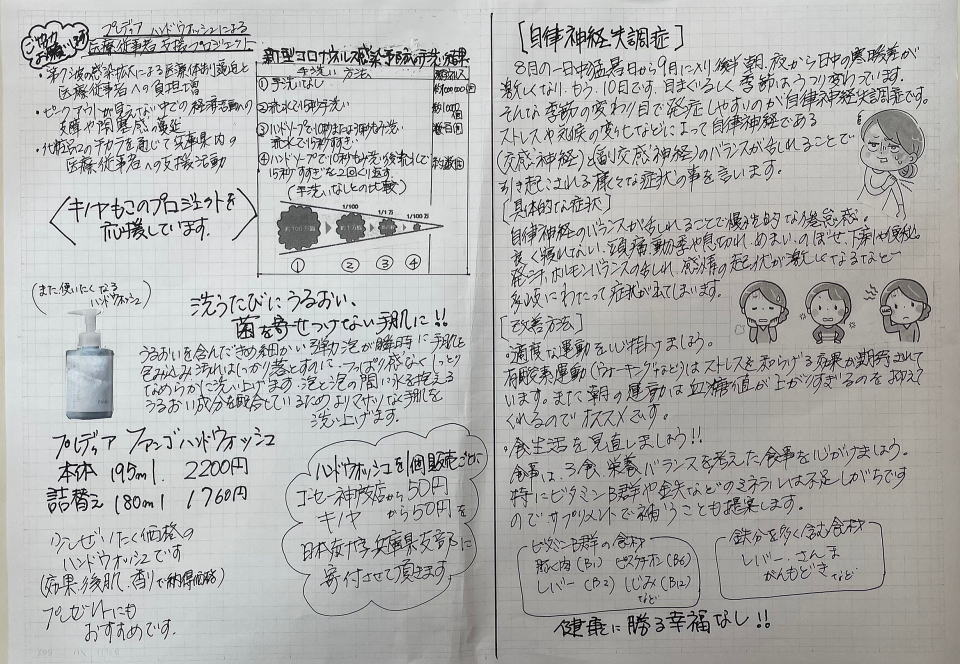 ご協力
お願いします
プレディア ハンドウォッシュによる
医療従事者支援プロジェクト
・第7波の感染拡大による医療体制逼迫と
医療従事者への負担増
・ピークアウトが見えない中での経済活動への
支障や閉塞感の蔓延
・化粧品のチカラを通じて兵庫県内の
医療従事者への支援活動
〈キノヤもこのプロジェクトを
応援しています.〉
新型コロナウイルス感染予防の手洗い効果
手洗い方法
残存ウイルス
①手洗いなし
約1000000個
②流水で15秒手洗い
約10000個
③ハンドソープで10秒または30秒もみ洗い
流水で15秒すすぎ
数百個
④ハンドソープで10秒もみ洗い後流水で
15秒すすぎを2回くり返す
約数個
(手洗いなしとの比較)
約100万個
1/100
約1万個
1/1万
1/100万
① ② ③ ④
(また使いたくなる
ハンドウォッシュ)
洗うたびにうるおい、
菌を寄せつけない手肌に!!
うるおいを含んだきめ細かい弾力泡が瞬時に手肌を
包み込み汚れはしっかり落とすのに、つっぱり感なくしっとり
なめらかに洗い上げます。泡と泡の間に水を抱える
うるおい成分を配合しているためよりモチッとした手肌に
洗い上げます。
プレディア ファンゴハンドウォッシュ
本体 195ml. 2200円
詰替え 180ml 1760円
少しぜいたく価格の
ハンドウォッシュです
(効果・後肌、香りで納得価格)
プレゼントにも
おすすめです.
ハンドウォッシュを1個販売ごとに
コーセー神戸支店から50円
キノヤ から50円を
日本赤十字兵庫県支部に
寄付させて頂きます.
[自律神経失調症]
8月の一日中猛暑日から9月に入り後半、朝、夜から日中の寒暖差が
激しくなり、もう、10月です。目まぐるしく季節はうつり変わっています。
そんな季節の変わり目で発症しやすいのが自律神経失調症です。
ストレスや気候の変化などによって自律神経である
(交感神経)と(副交感神経)のバランスが乱れることで
引き起こされる様々な症状の事を言います。
[具体的な症状]
自律神経のバランスが乱れることで慢性的な倦怠感。
良く寝れない、頭痛、動悸や息切れ、めまい、のぼせ、下痢や便秘。
発汗、ホルモンバランスの乱れ、感情の起伏が激しくなるなど…
多岐にわたって症状が出てしまいます。
[改善方法]
・適度な運動を心掛けましょう。
有酸素運動(ウォーキングなど)はストレスを和らげる効果が期待されて
います。また朝の運動は血糖値が上がりすぎるのをおさえて
くれるのでオススメです。
・食生活を見直しましょう!!
食事は、3食、栄養バランスを考えた食事を心がけましょう。
特にビタミンB群や鉄などのミネラルは不足しがちです
のでサプリメントで補うことも提案します。
ビタミンB群の食材
豚肉(B1) ピスタチオ(B6)
レバー(B2) しじみ(B12)
など
鉄分を多く含む食材
レバー、さんま
がんもどきなど
健康に勝る幸福なし!!